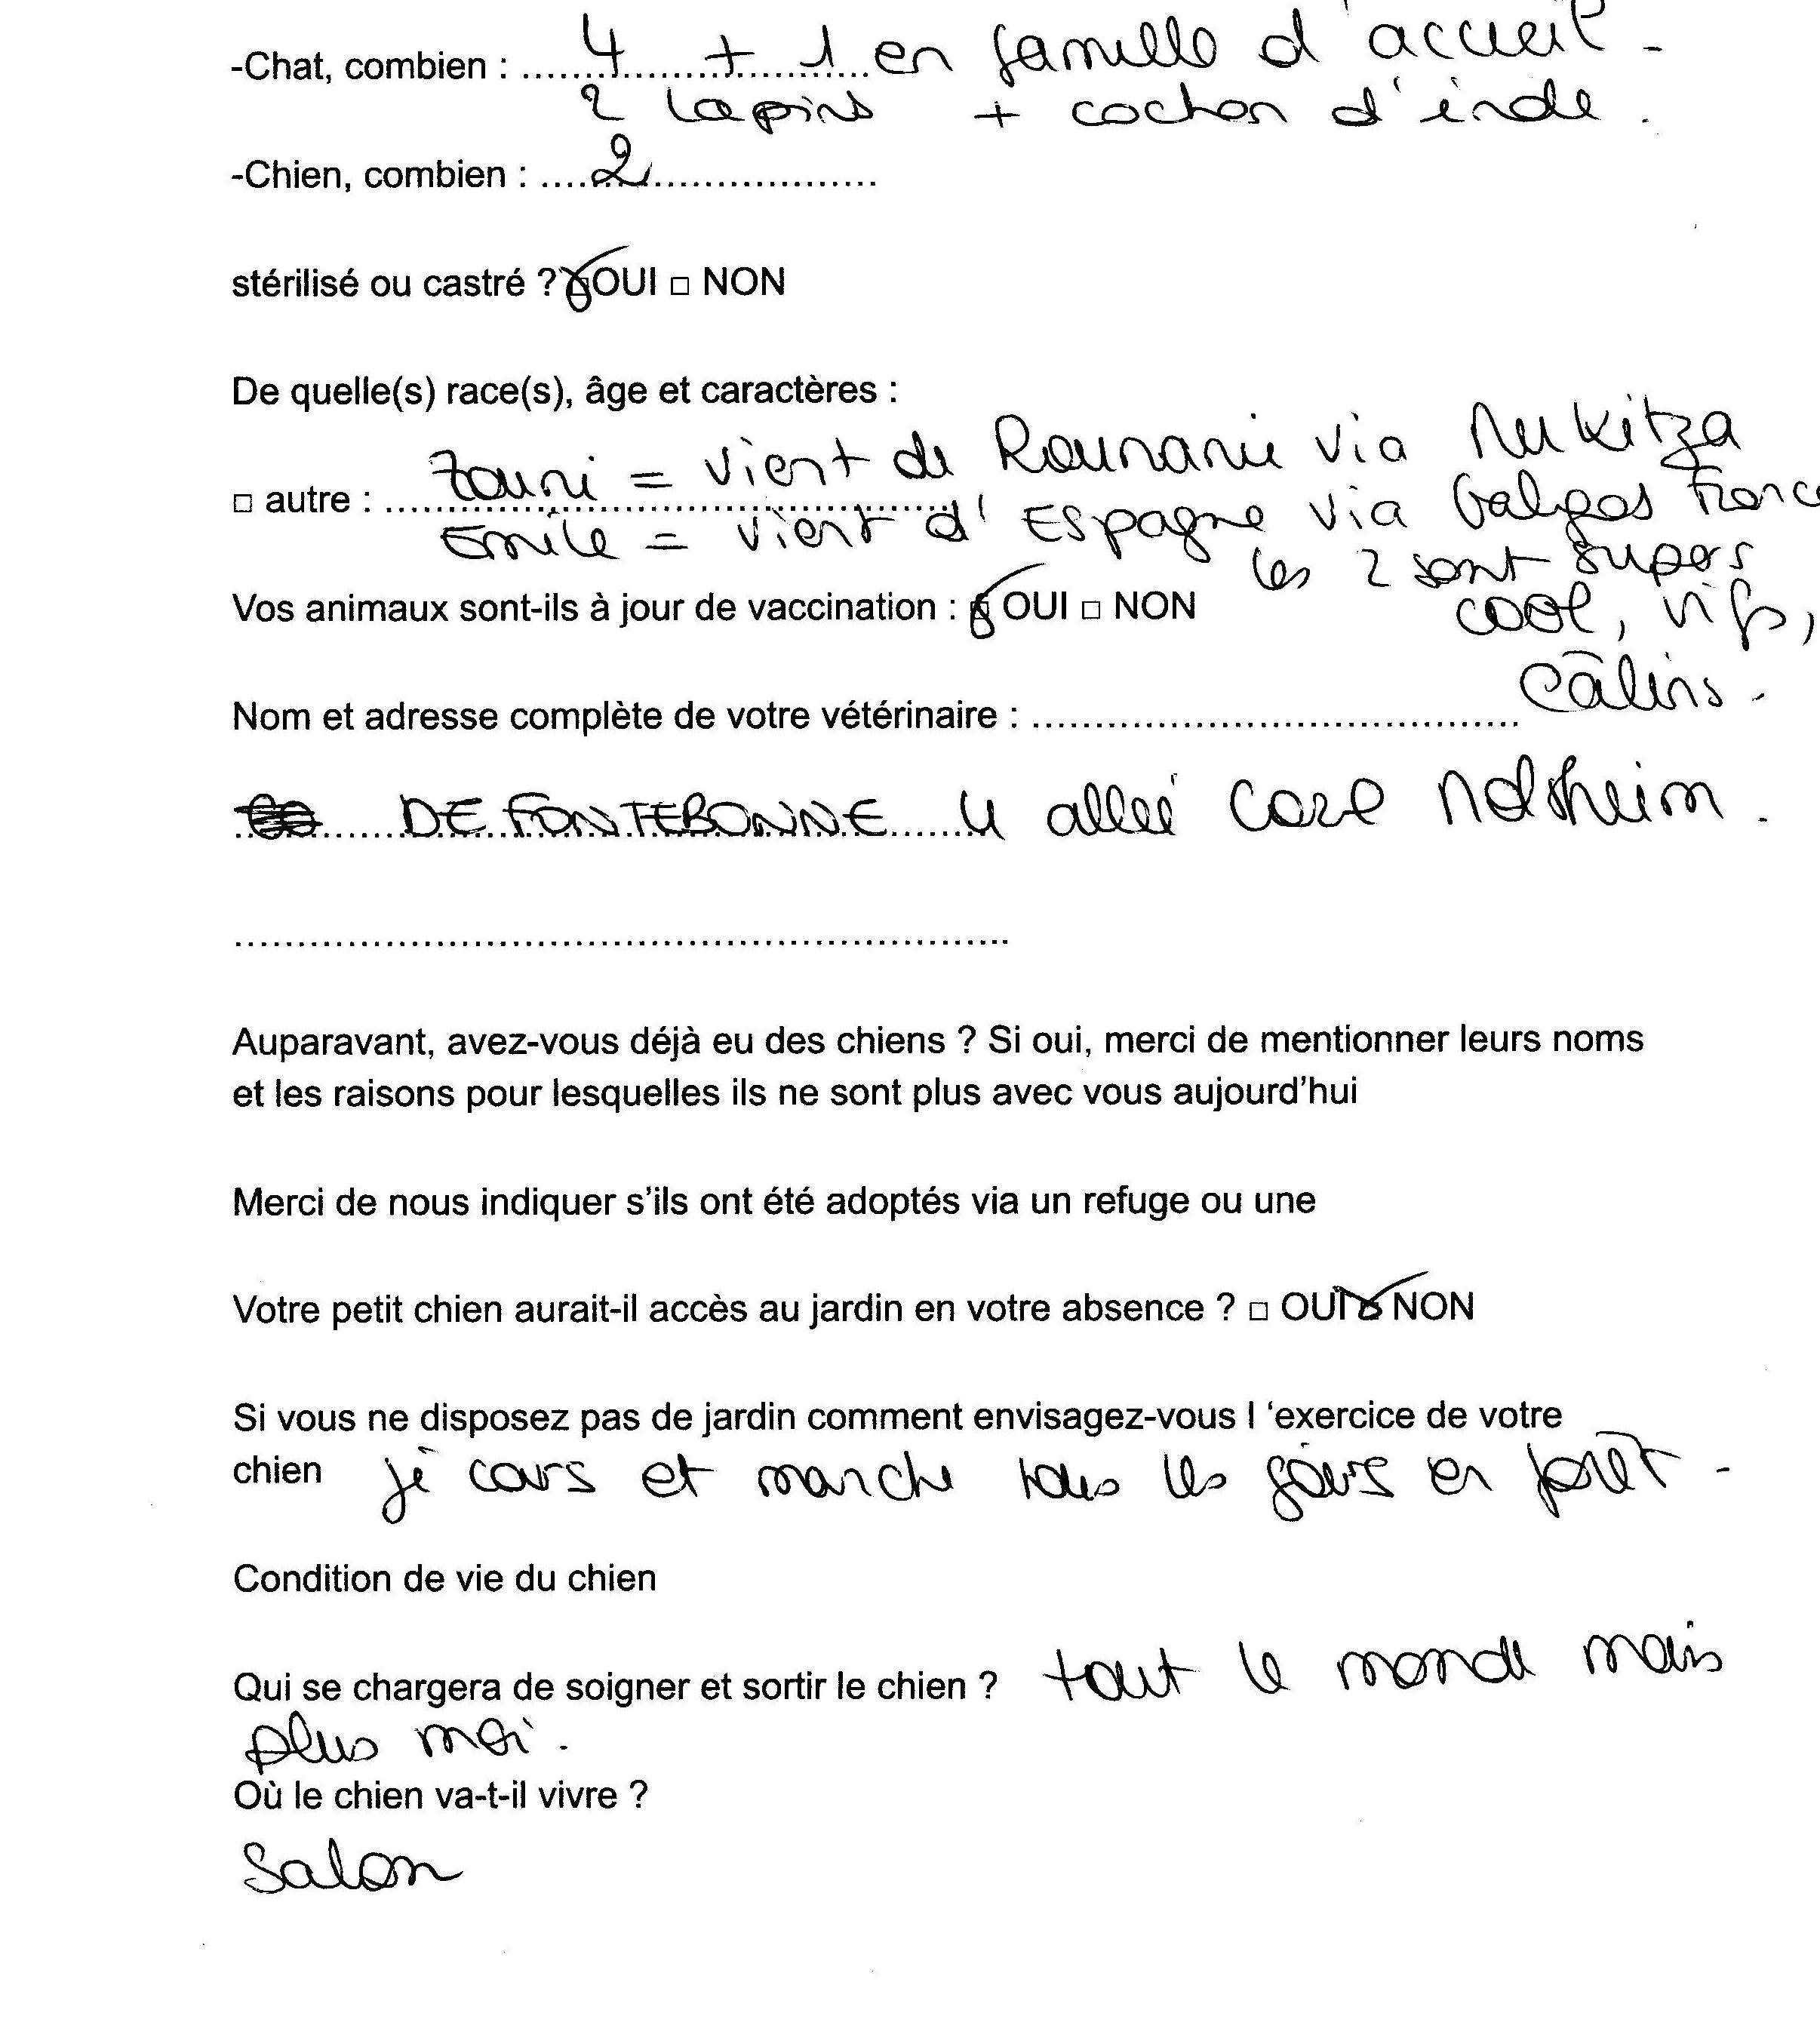 -Chat, combien : ....4....+....1....en famille d'accueil -
2 lapins + cochon d'inde.
-Chien, combien : ....2....................
stérilisé ou castré ? ☒ OUI □ NON
De quelle(s) race(s), âge et caractères :
Zouni = vient de Roumanie via Mukitza
□ autre : ........................................
Emile = vient d'Espagne via Galgos France
les 2 sont supers
Vos animaux sont-ils à jour de vaccination : ☒ OUI □ NON
cool, vifs,
câlins.
Nom et adresse complète de votre vétérinaire : ........................................
DE FONTEBONNE 4 allée Carl Molsheim.
................................................................
Auparavant, avez-vous déjà eu des chiens ? Si oui, merci de mentionner leurs noms
et les raisons pour lesquelles ils ne sont plus avec vous aujourd'hui
Merci de nous indiquer s'ils ont été adoptés via un refuge ou une
Votre petit chien aurait-il accès au jardin en votre absence ? □ OUI ☒ NON
Si vous ne disposez pas de jardin comment envisagez-vous l 'exercice de votre
chien je cours et marche tous les jours en forêt -
Condition de vie du chien
Qui se chargera de soigner et sortir le chien ? tout le monde mais
plus moi.
Où le chien va-t-il vivre ?
Salon